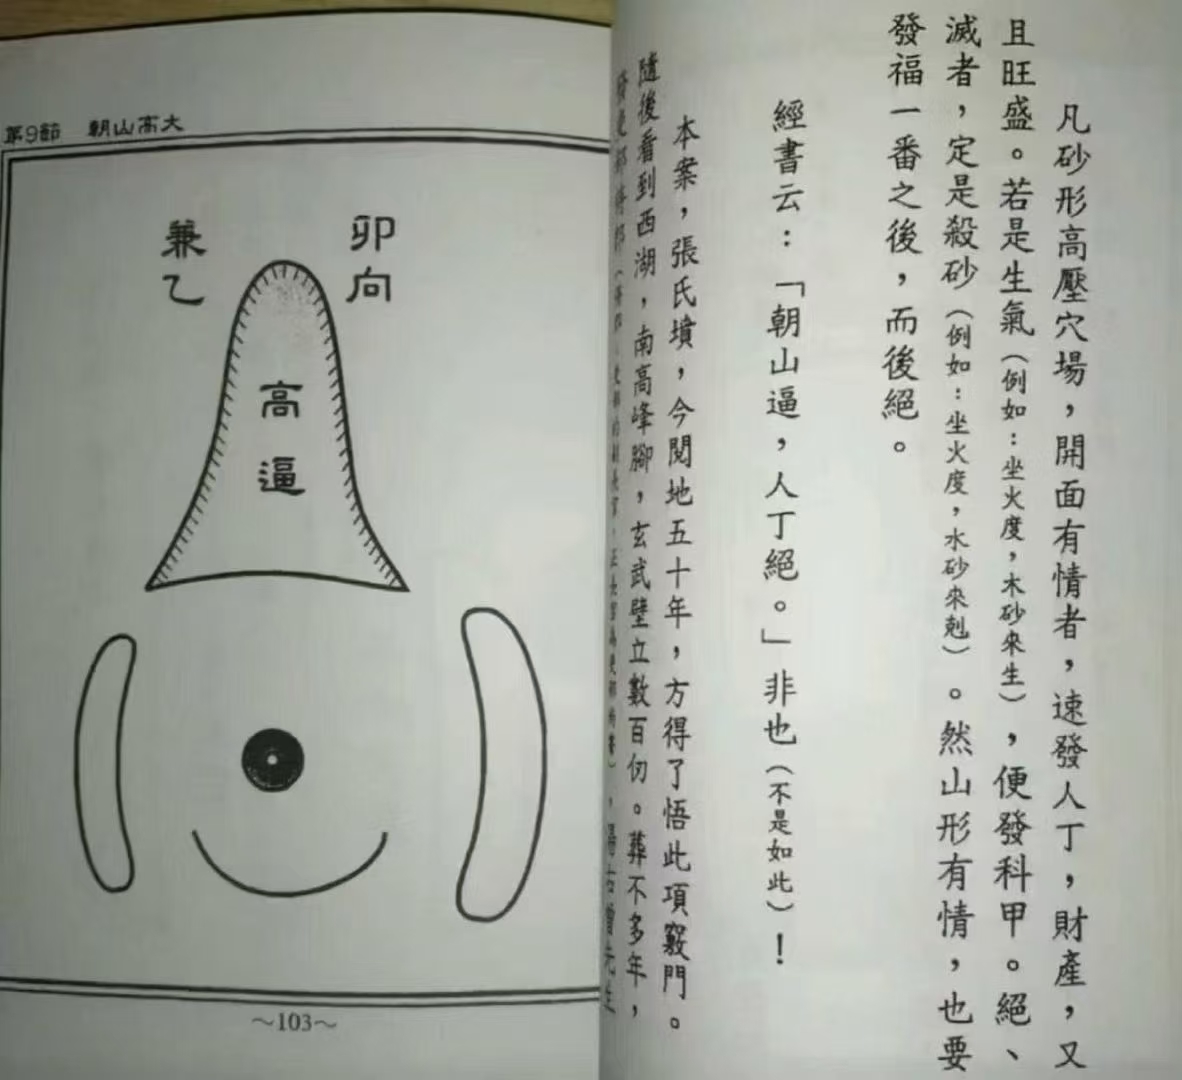 凡砂形高壓穴場，開面有情者，速發人丁，財產，又
且旺盛。若是生氣（例如：坐火度，木砂來生），便發科甲。絕、
滅者，定是殺砂（例如：坐火度，水砂來剋）。然山形有情，也要
發福一番之後，而後絕。
經書云：「朝山逼，人丁絕。」非也（不是如此）！
本案，張氏墳，今閱地五十年，方得了悟此項竅門。
隨後看到西湖，南高峰腳，玄武壁立數百仞。葬不多年，
曾先生
第9節　朝山高大
卯向
兼乙
高逼
～103～